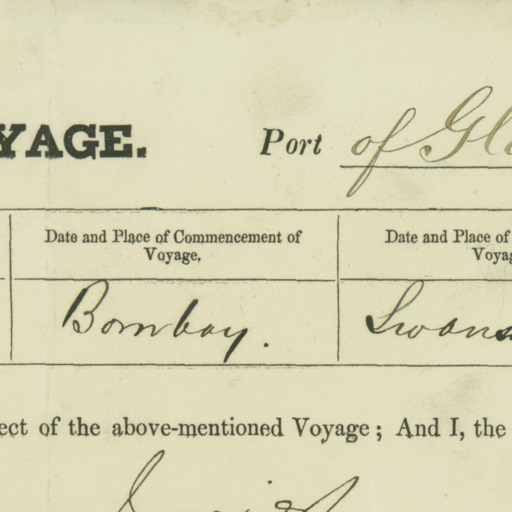 YAGE.
Port of Gl
Date and Place of Commencement of
Voyage.
Date and Place of
Voyag
Bombay.
Swans
ect of the above-mentioned Voyage; And I, the